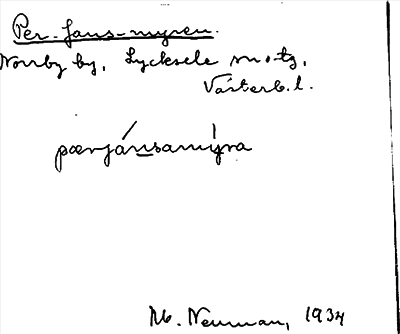 Per-Jans-myren.
Norrby by, Lycksele sn o. tg,
Västerb. l.
pærjánsamýra
M. Neuman, 1934